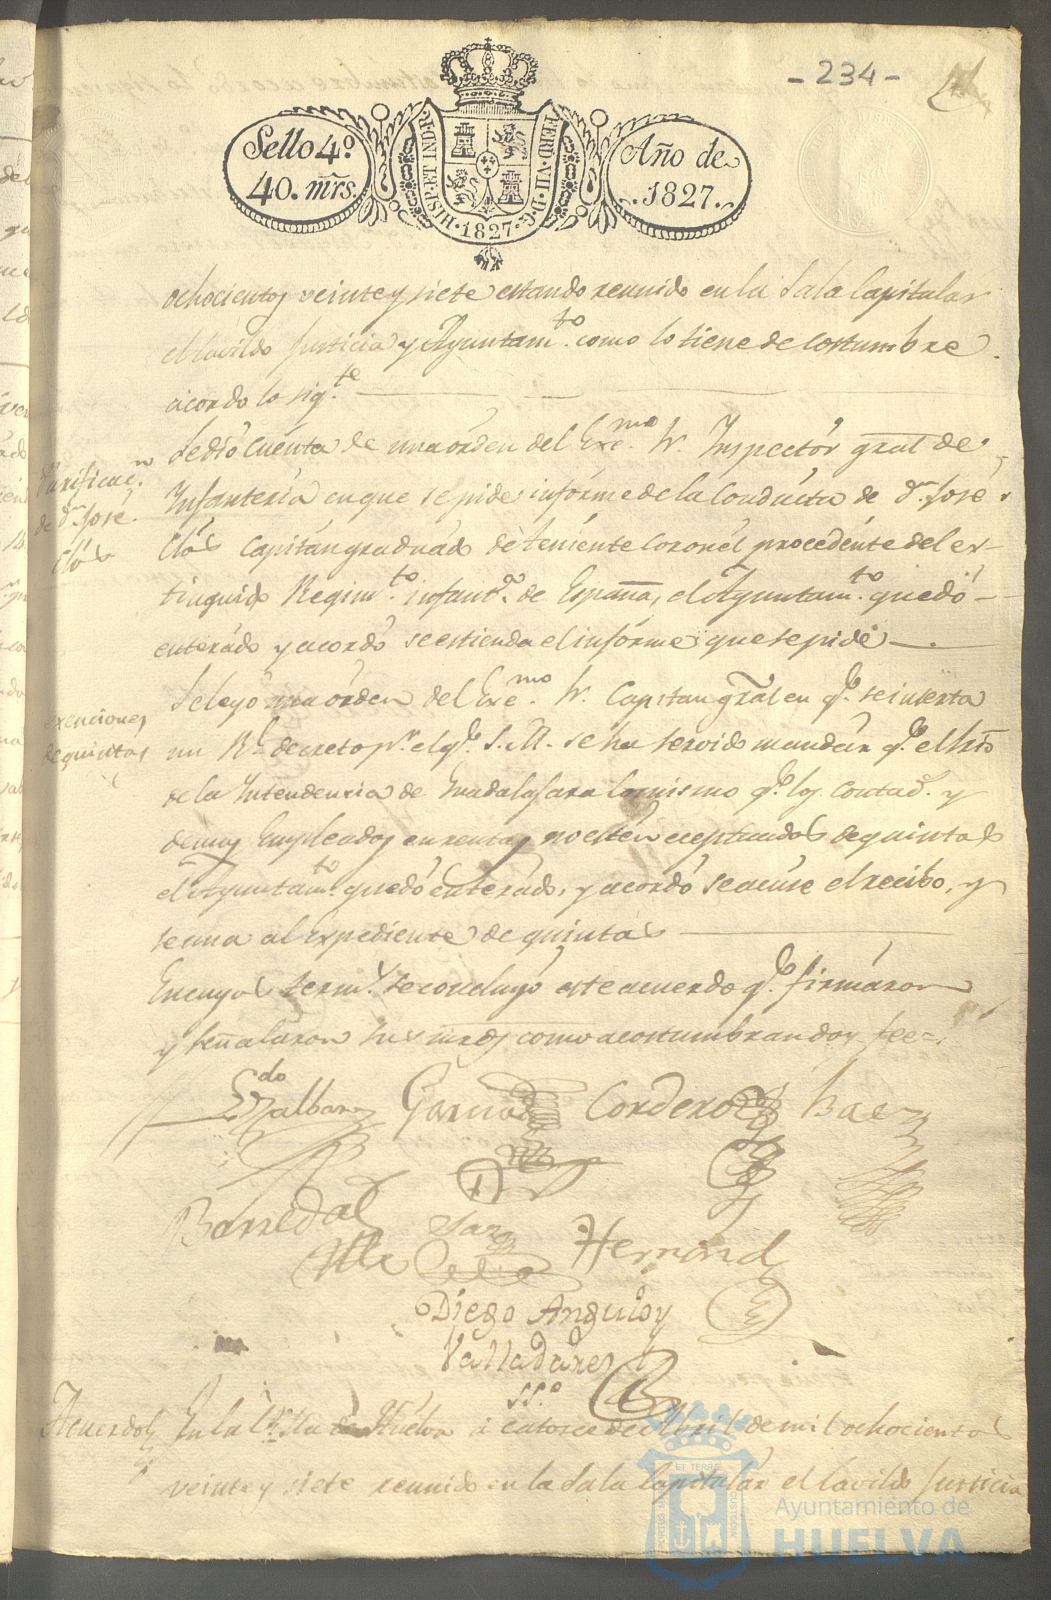 - 234 -
Sello 4º
40. mrs.
HISP. ET IND. R.
FERD. VII. D. G.
· 1827 ·
Año de
1827.
ochocientos veinte y siete estando reunido en la Sala Capitular
el Cavildo Justicia y Ayuntam.to como lo tiene de costumbre
acordo lo sig.te
Purificac.n
de d.n José
Clós
Se dió cuenta de una órden del Exc.mo Sr. Inspectór gral de
Infanteria en que se pide infórme de la Conducta de d.n José
Clós Capitan graduado de teniente Coronél procedente del ex-
tinguido Regim.to infant.a de España, el Ayuntam.to quedó
enterado y acordó se estienda el infórme que se pide
exenciones
de quintas
Se leyó una órden del Exc.mo Sr. Capitan gral en q.e se inserta
un Rl. decreto p.r el q.e S. M. se ha servido mandar q.e el
de la Intendencia de Guadalajara lo mismo q.e los Contad.s y
demas Empleados en rentas no estén eceptuados de quintas
el Ayuntam.to quedó enterado, y acordó se acuse el recibo, y
se una al Expediente de quintas
En cuyos term.s se concluyó este acuerdo q.e firmáron
y señalaron sus mrds como acostumbran doy fee=
Garcia
Cordero
Baez
Barredal
Hernand
Diego Angulo y
Valladares
SS.º
Acuerdo En la Villa de Huelva á catorce de Abril de mil ochocientos
veinte y siete reunido en la Sala Capitulár el Cavildo Justicia
Ayuntamiento de
HUELVA